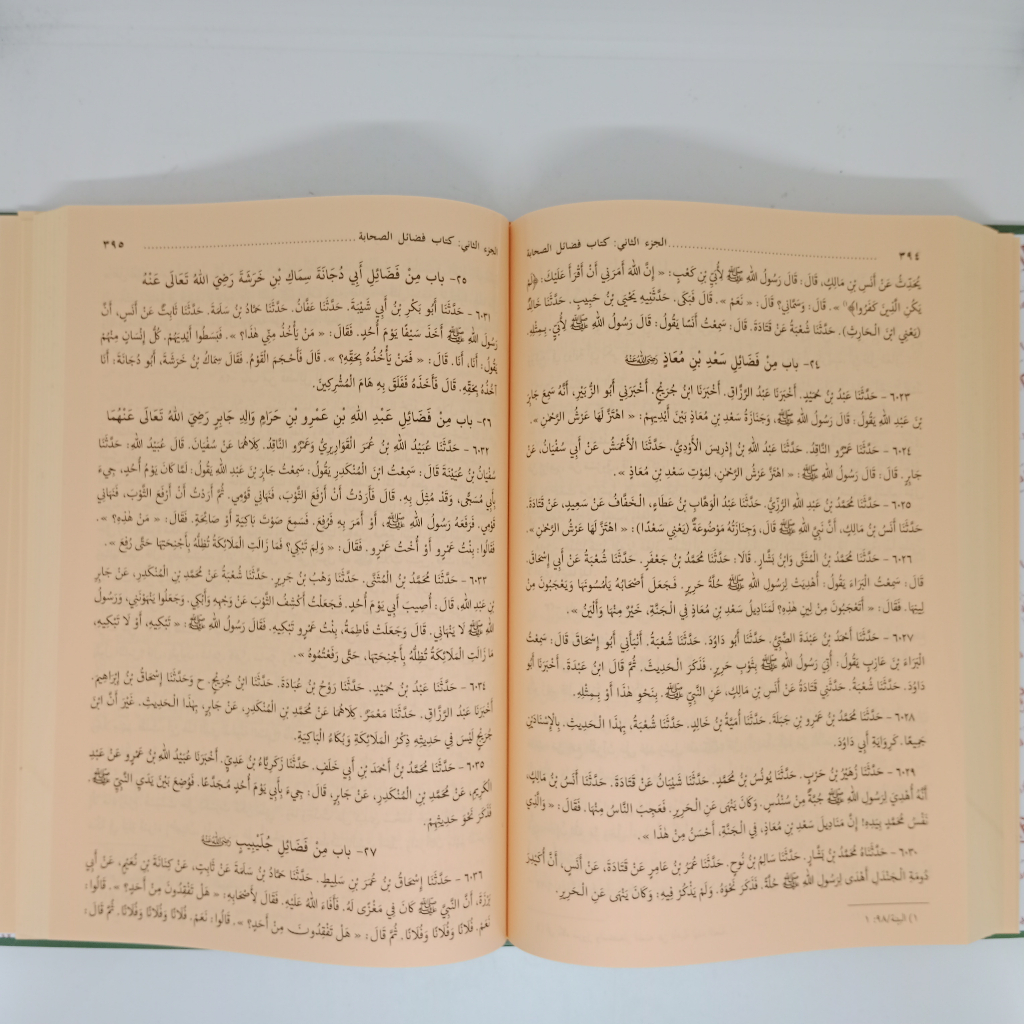 ٣٩٤ ........ الجزء الثاني: كتاب فضائل الصحابة
يُحَدِّثُ عَنْ أَنَسِ بْنِ مَالِكٍ، قَالَ: قَالَ رَسُولُ اللهِ ﷺ لِأُبَيِّ بْنِ كَعْبٍ: « إِنَّ اللهَ أَمَرَنِي أَنْ أَقْرَأَ عَلَيْكَ: ﴿لَمْ
يَكُنِ الَّذِينَ كَفَرُوا﴾¹ ». قَالَ: وَسَمَّانِي؟ قَالَ: « نَعَمْ ». قَالَ فَبَكَى. حَدَّثَنِيهِ يَحْيَى بْنُ حَبِيبٍ. حَدَّثَنَا خَالِدٌ
(يَعْنِي ابْنَ الْحَارِثِ). حَدَّثَنَا شُعْبَةُ عَنْ قَتَادَةَ. قَالَ: سَمِعْتُ أَنَسًا يَقُولُ: قَالَ رَسُولُ اللهِ ﷺ لِأُبَيٍّ. بِمِثْلِهِ.
٢٤- باب مِنْ فَضَائِلِ سَعْدِ بْنِ مُعَاذٍ رضي الله عنه
٦٠٢٣ - حَدَّثَنَا عَبْدُ بْنُ حُمَيْدٍ. أَخْبَرَنَا عَبْدُ الرَّزَّاقِ. أَخْبَرَنَا ابْنُ جُرَيْجٍ. أَخْبَرَنِي أَبُو الزُّبَيْرِ، أَنَّهُ سَمِعَ جَابِرَ
بْنَ عَبْدِ اللهِ يَقُولُ: قَالَ رَسُولُ اللهِ ﷺ، وَجَنَازَةُ سَعْدِ بْنِ مُعَاذٍ بَيْنَ أَيْدِيهِمْ: « اهْتَزَّ لَهَا عَرْشُ الرَّحْمٰنِ ».
٦٠٢٤ - حَدَّثَنَا عَمْرٌو النَّاقِدُ. حَدَّثَنَا عَبْدُ اللهِ بْنُ إِدْرِيسَ الْأَوْدِيُّ. حَدَّثَنَا الْأَعْمَشُ عَنْ أَبِي سُفْيَانَ، عَنْ
جَابِرٍ. قَالَ: قَالَ رَسُولُ اللهِ ﷺ: « اهْتَزَّ عَرْشُ الرَّحْمٰنِ، لِمَوْتِ سَعْدِ بْنِ مُعَاذٍ ».
٦٠٢٥ - حَدَّثَنَا مُحَمَّدُ بْنُ عَبْدِ اللهِ الرُّزِّيُّ. حَدَّثَنَا عَبْدُ الْوَهَّابِ بْنُ عَطَاءٍ، الْخَفَّافُ عَنْ سَعِيدٍ، عَنْ قَتَادَةَ.
حَدَّثَنَا أَنَسُ بْنُ مَالِكٍ، أَنَّ نَبِيَّ اللهِ ﷺ قَالَ، وَجَنَازَتُهُ مَوْضُوعَةٌ (يَعْنِي سَعْدًا): « اهْتَزَّ لَهَا عَرْشُ الرَّحْمٰنِ ».
٦٠٢٦ - حَدَّثَنَا مُحَمَّدُ بْنُ الْمُثَنَّى وَابْنُ بَشَّارٍ. قَالَا: حَدَّثَنَا مُحَمَّدُ بْنُ جَعْفَرٍ. حَدَّثَنَا شُعْبَةُ عَنْ أَبِي إِسْحَاقَ.
قَالَ: سَمِعْتُ الْبَرَاءَ يَقُولُ: أُهْدِيَتْ لِرَسُولِ اللهِ ﷺ حُلَّةُ حَرِيرٍ. فَجَعَلَ أَصْحَابُهُ يَلْمُسُونَهَا وَيَعْجَبُونَ مِنْ
لِينِهَا. فَقَالَ: « أَتَعْجَبُونَ مِنْ لِينِ هَذِهِ؟ لَمَنَادِيلُ سَعْدِ بْنِ مُعَاذٍ فِي الْجَنَّةِ، خَيْرٌ مِنْهَا وَأَلْيَنُ ».
٦٠٢٧ - حَدَّثَنَا أَحْمَدُ بْنُ عَبْدَةَ الضَّبِّيُّ. حَدَّثَنَا أَبُو دَاوُدَ. حَدَّثَنَا شُعْبَةُ. أَنْبَأَنِي أَبُو إِسْحَاقَ قَالَ: سَمِعْتُ
الْبَرَاءَ بْنَ عَازِبٍ يَقُولُ: أُتِيَ رَسُولُ اللهِ ﷺ بِثَوْبِ حَرِيرٍ. فَذَكَرَ الْحَدِيثَ. ثُمَّ قَالَ ابْنُ عَبْدَةَ: أَخْبَرَنَا أَبُو
دَاوُدَ. حَدَّثَنَا شُعْبَةُ. حَدَّثَنِي قَتَادَةُ عَنْ أَنَسِ بْنِ مَالِكٍ، عَنِ النَّبِيِّ ﷺ، بِنَحْوِ هَذَا أَوْ بِمِثْلِهِ.
٦٠٢٨ - حَدَّثَنَا مُحَمَّدُ بْنُ عَمْرِو بْنِ جَبَلَةَ. حَدَّثَنَا أُمَيَّةُ بْنُ خَالِدٍ. حَدَّثَنَا شُعْبَةُ، بِهَذَا الْحَدِيثِ. بِالْإِسْنَادَيْنِ
جَمِيعًا. كَرِوَايَةِ أَبِي دَاوُدَ.
٦٠٢٩ - حَدَّثَنَا زُهَيْرُ بْنُ حَرْبٍ. حَدَّثَنَا يُونُسُ بْنُ مُحَمَّدٍ. حَدَّثَنَا شَيْبَانُ عَنْ قَتَادَةَ. حَدَّثَنَا أَنَسُ بْنُ مَالِكٍ،
أَنَّهُ أُهْدِيَ لِرَسُولِ اللهِ ﷺ جُبَّةٌ مِنْ سُنْدُسٍ. وَكَانَ يَنْهَى عَنِ الْحَرِيرِ. فَعَجِبَ النَّاسُ مِنْهَا. فَقَالَ: « وَالَّذِي
نَفْسُ مُحَمَّدٍ بِيَدِهِ! إِنَّ مَنَادِيلَ سَعْدِ بْنِ مُعَاذٍ، فِي الْجَنَّةِ، أَحْسَنُ مِنْ هَذَا ».
٦٠٣٠ - حَدَّثَنَاهُ مُحَمَّدُ بْنُ بَشَّارٍ. حَدَّثَنَا سَالِمُ بْنُ نُوحٍ. حَدَّثَنَا عُمَرُ بْنُ عَامِرٍ عَنْ قَتَادَةَ، عَنْ أَنَسٍ، أَنَّ أُكَيْدِرَ
دُومَةِ الْجَنْدَلِ أَهْدَى لِرَسُولِ اللهِ ﷺ حُلَّةً. فَذَكَرَ نَحْوَهُ. وَلَمْ يَذْكُرْ فِيهِ: وَكَانَ يَنْهَى عَنِ الْحَرِيرِ.
١) البينة/٩٨: ١
الجزء الثاني: كتاب فضائل الصحابة ........ ٣٩٥
٢٥- باب مِنْ فَضَائِلِ أَبِي دُجَانَةَ سِمَاكِ بْنِ خَرَشَةَ رَضِيَ اللهُ تَعَالَى عَنْهُ
٦٠٣١ - حَدَّثَنَا أَبُو بَكْرِ بْنُ أَبِي شَيْبَةَ. حَدَّثَنَا عَفَّانُ. حَدَّثَنَا حَمَّادُ بْنُ سَلَمَةَ. حَدَّثَنَا ثَابِتٌ عَنْ أَنَسٍ، أَنَّ
رَسُولَ اللهِ ﷺ أَخَذَ سَيْفًا يَوْمَ أُحُدٍ. فَقَالَ: « مَنْ يَأْخُذُ مِنِّي هَذَا؟ ». فَبَسَطُوا أَيْدِيَهُمْ. كُلُّ إِنْسَانٍ مِنْهُمْ
يَقُولُ: أَنَا، أَنَا. قَالَ: « فَمَنْ يَأْخُذُهُ بِحَقِّهِ؟ ». قَالَ فَأَحْجَمَ الْقَوْمُ. فَقَالَ سِمَاكُ بْنُ خَرَشَةَ، أَبُو دُجَانَةَ: أَنَا
آخُذُهُ بِحَقِّهِ. قَالَ فَأَخَذَهُ فَفَلَقَ بِهِ هَامَ الْمُشْرِكِينَ.
٢٦- باب مِنْ فَضَائِلِ عَبْدِ اللهِ بْنِ عَمْرِو بْنِ حَرَامٍ وَالِدِ جَابِرٍ رَضِيَ اللهُ تَعَالَى عَنْهُمَا
٦٠٣٢ - حَدَّثَنَا عُبَيْدُ اللهِ بْنُ عُمَرَ الْقَوَارِيرِيُّ وَعَمْرٌو النَّاقِدُ. كِلَاهُمَا عَنْ سُفْيَانَ. قَالَ عُبَيْدُ اللهِ: حَدَّثَنَا
سُفْيَانُ بْنُ عُيَيْنَةَ قَالَ: سَمِعْتُ ابْنَ الْمُنْكَدِرِ يَقُولُ: سَمِعْتُ جَابِرَ بْنَ عَبْدِ اللهِ يَقُولُ: لَمَّا كَانَ يَوْمُ أُحُدٍ، جِيءَ
بِأَبِي مُسَجًّى، وَقَدْ مُثِلَ بِهِ. قَالَ فَأَرَدْتُ أَنْ أَرْفَعَ الثَّوْبَ، فَنَهَانِي قَوْمِي. ثُمَّ أَرَدْتُ أَنْ أَرْفَعَ الثَّوْبَ، فَنَهَانِي
قَوْمِي. فَرَفَعَهُ رَسُولُ اللهِ ﷺ، أَوْ أَمَرَ بِهِ فَرُفِعَ. فَسَمِعَ صَوْتَ بَاكِيَةٍ أَوْ صَائِحَةٍ. فَقَالَ: « مَنْ هَذِهِ؟ ».
فَقَالُوا: بِنْتُ عَمْرٍو أَوْ أُخْتُ عَمْرٍو. فَقَالَ: « وَلِمَ تَبْكِي؟ فَمَا زَالَتِ الْمَلَائِكَةُ تُظِلُّهُ بِأَجْنِحَتِهَا حَتَّى رُفِعَ ».
٦٠٣٣ - حَدَّثَنَا مُحَمَّدُ بْنُ الْمُثَنَّى. حَدَّثَنَا وَهْبُ بْنُ جَرِيرٍ. حَدَّثَنَا شُعْبَةُ عَنْ مُحَمَّدِ بْنِ الْمُنْكَدِرِ، عَنْ جَابِرِ
بْنِ عَبْدِ اللهِ، قَالَ: أُصِيبَ أَبِي يَوْمَ أُحُدٍ. فَجَعَلْتُ أَكْشِفُ الثَّوْبَ عَنْ وَجْهِهِ وَأَبْكِي. وَجَعَلُوا يَنْهَوْنَنِي، وَرَسُولُ
اللهِ ﷺ لَا يَنْهَانِي. قَالَ وَجَعَلَتْ فَاطِمَةُ، بِنْتُ عَمْرٍو تَبْكِيهِ. فَقَالَ رَسُولُ اللهِ ﷺ: « تَبْكِيهِ، أَوْ لَا تَبْكِيهِ،
مَا زَالَتِ الْمَلَائِكَةُ تُظِلُّهُ بِأَجْنِحَتِهَا، حَتَّى رَفَعْتُمُوهُ ».
٦٠٣٤ - حَدَّثَنَا عَبْدُ بْنُ حُمَيْدٍ. حَدَّثَنَا رَوْحُ بْنُ عُبَادَةَ. حَدَّثَنَا ابْنُ جُرَيْجٍ. ح وَحَدَّثَنَا إِسْحَاقُ بْنُ إِبْرَاهِيمَ.
أَخْبَرَنَا عَبْدُ الرَّزَّاقِ. حَدَّثَنَا مَعْمَرٌ. كِلَاهُمَا عَنْ مُحَمَّدِ بْنِ الْمُنْكَدِرِ، عَنْ جَابِرٍ، بِهَذَا الْحَدِيثِ. غَيْرَ أَنَّ ابْنَ
جُرَيْجٍ لَيْسَ فِي حَدِيثِهِ ذِكْرُ الْمَلَائِكَةِ وَبُكَاءُ الْبَاكِيَةِ.
٦٠٣٥ - حَدَّثَنَا مُحَمَّدُ بْنُ أَحْمَدَ بْنِ أَبِي خَلَفٍ. حَدَّثَنَا زَكَرِيَّاءُ بْنُ عَدِيٍّ. أَخْبَرَنَا عُبَيْدُ اللهِ بْنُ عَمْرٍو عَنْ عَبْدِ
الْكَرِيمِ، عَنْ مُحَمَّدِ بْنِ الْمُنْكَدِرِ، عَنْ جَابِرٍ، قَالَ: جِيءَ بِأَبِي يَوْمَ أُحُدٍ مُجَدَّعًا. فَوُضِعَ بَيْنَ يَدَيِ النَّبِيِّ ﷺ.
فَذَكَرَ نَحْوَ حَدِيثِهِمْ.
٢٧- باب مِنْ فَضَائِلِ جُلَيْبِيبٍ رضي الله عنه
٦٠٣٦ - حَدَّثَنَا إِسْحَاقُ بْنُ عُمَرَ بْنِ سَلِيطٍ. حَدَّثَنَا حَمَّادُ بْنُ سَلَمَةَ عَنْ ثَابِتٍ، عَنْ كِنَانَةَ بْنِ نُعَيْمٍ، عَنْ أَبِي
بَرْزَةَ، أَنَّ النَّبِيَّ ﷺ كَانَ فِي مَغْزًى لَهُ. فَأَفَاءَ اللهُ عَلَيْهِ. فَقَالَ لِأَصْحَابِهِ: « هَلْ تَفْقِدُونَ مِنْ أَحَدٍ؟ ». قَالُوا:
نَعَمْ. فُلَانًا وَفُلَانًا وَفُلَانًا. ثُمَّ قَالَ: « هَلْ تَفْقِدُونَ مِنْ أَحَدٍ؟ ». قَالُوا: نَعَمْ. فُلَانًا وَفُلَانًا وَفُلَانًا. ثُمَّ قَالَ: